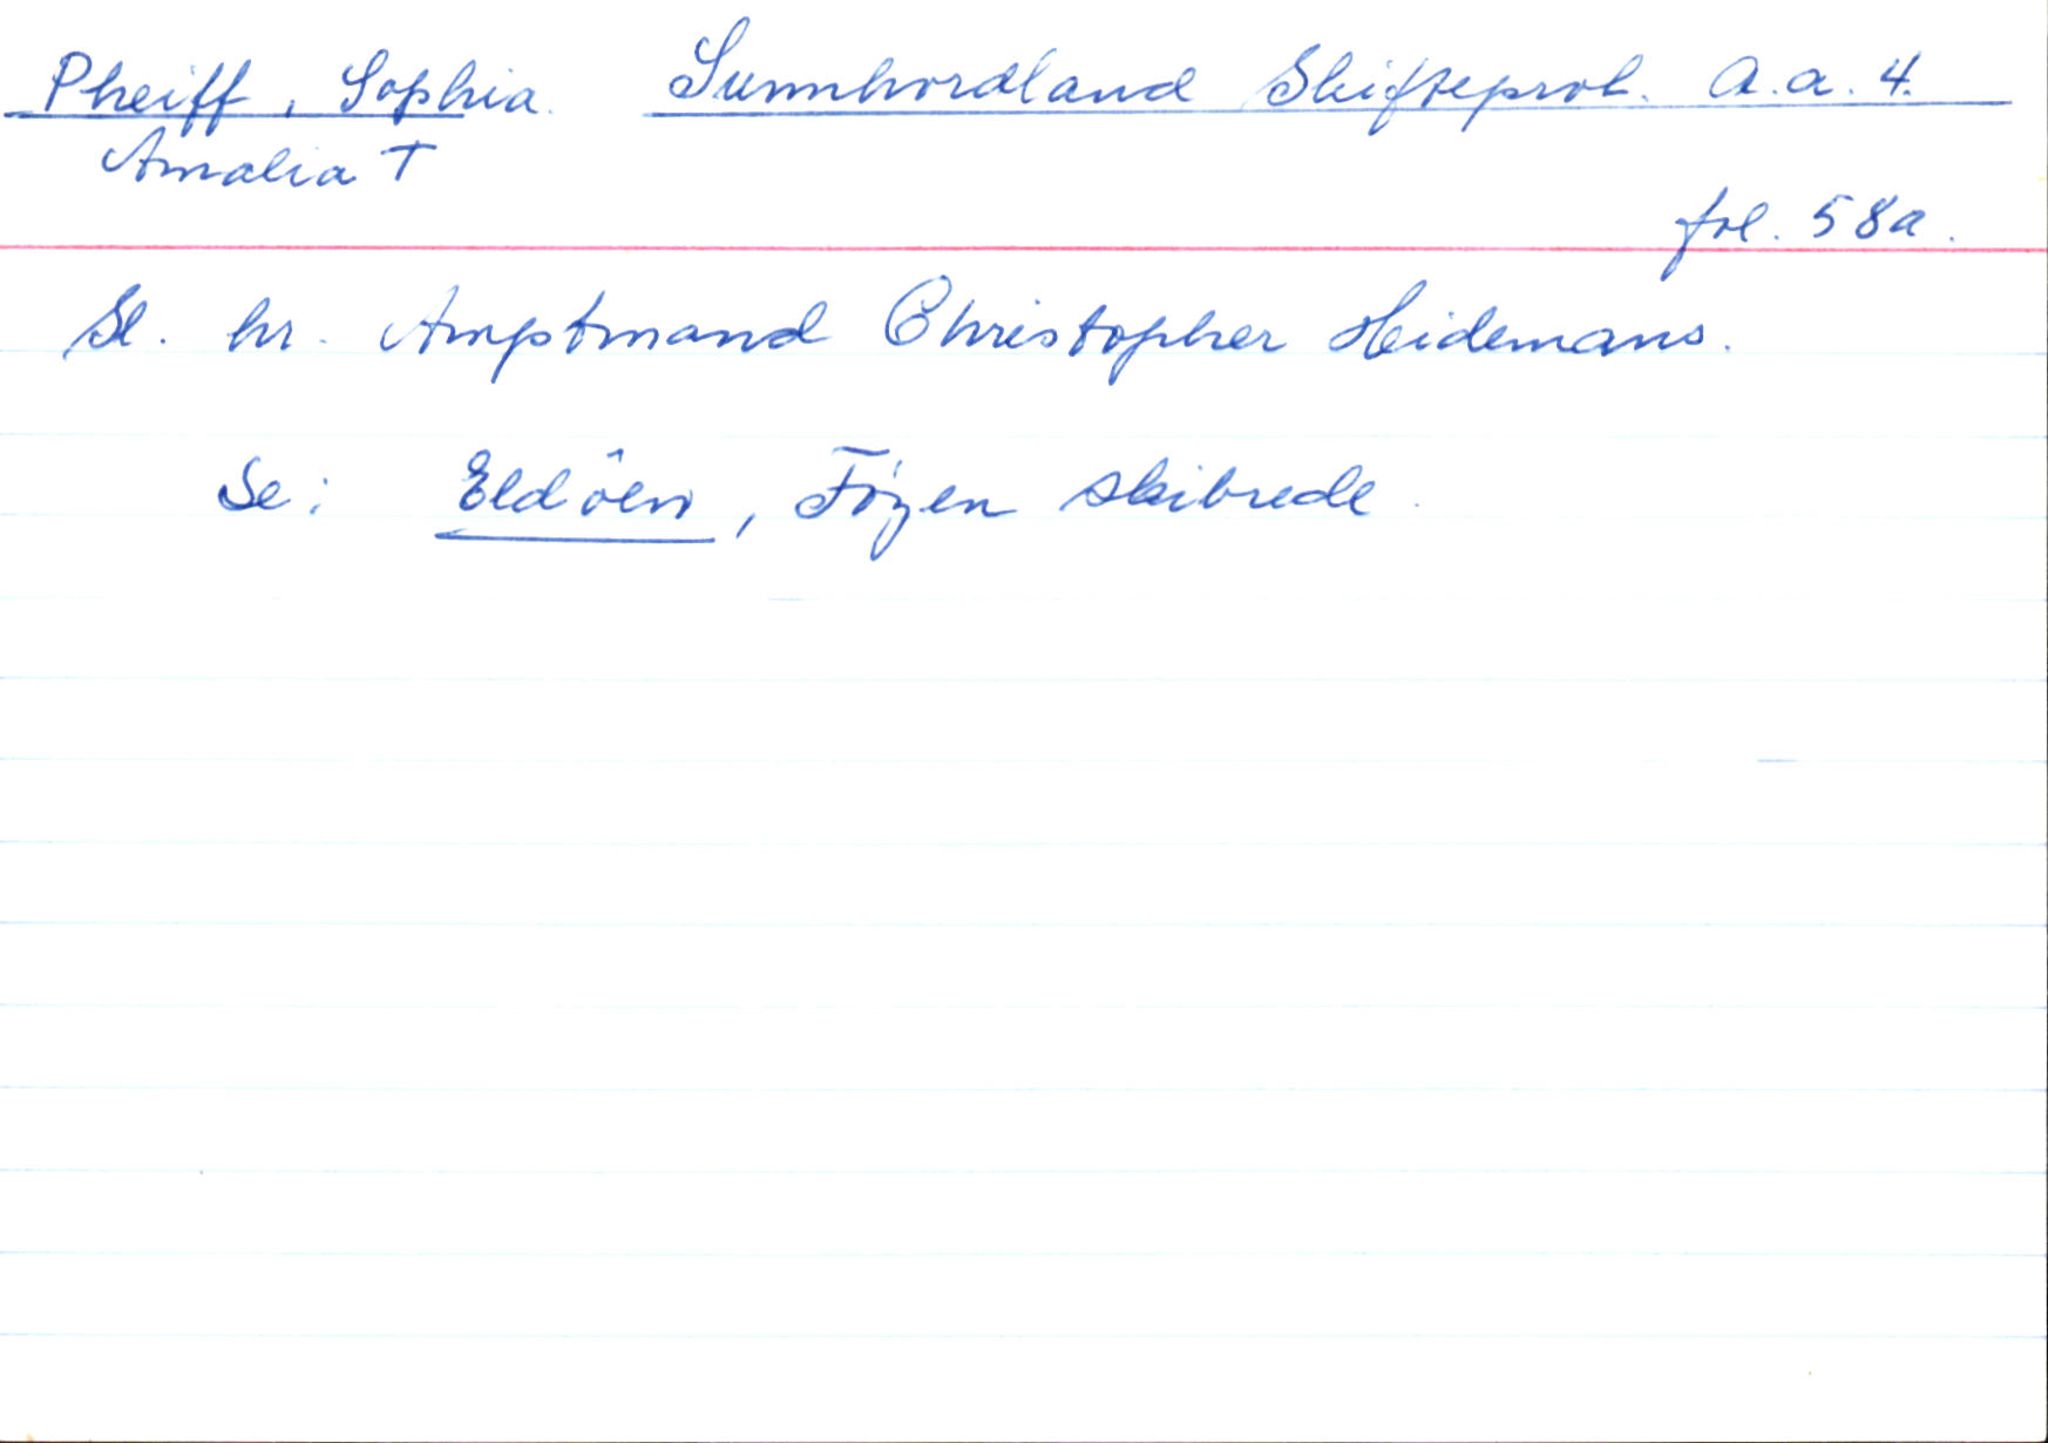 Pheiff, Sophia. Sunnhordland Skifteprot. A.a.4.
Amalia T
fol. 58a.
Sl. hr. Amptmand Christopher Heidemans.
Se: Eldöen, Föyen skibrede.